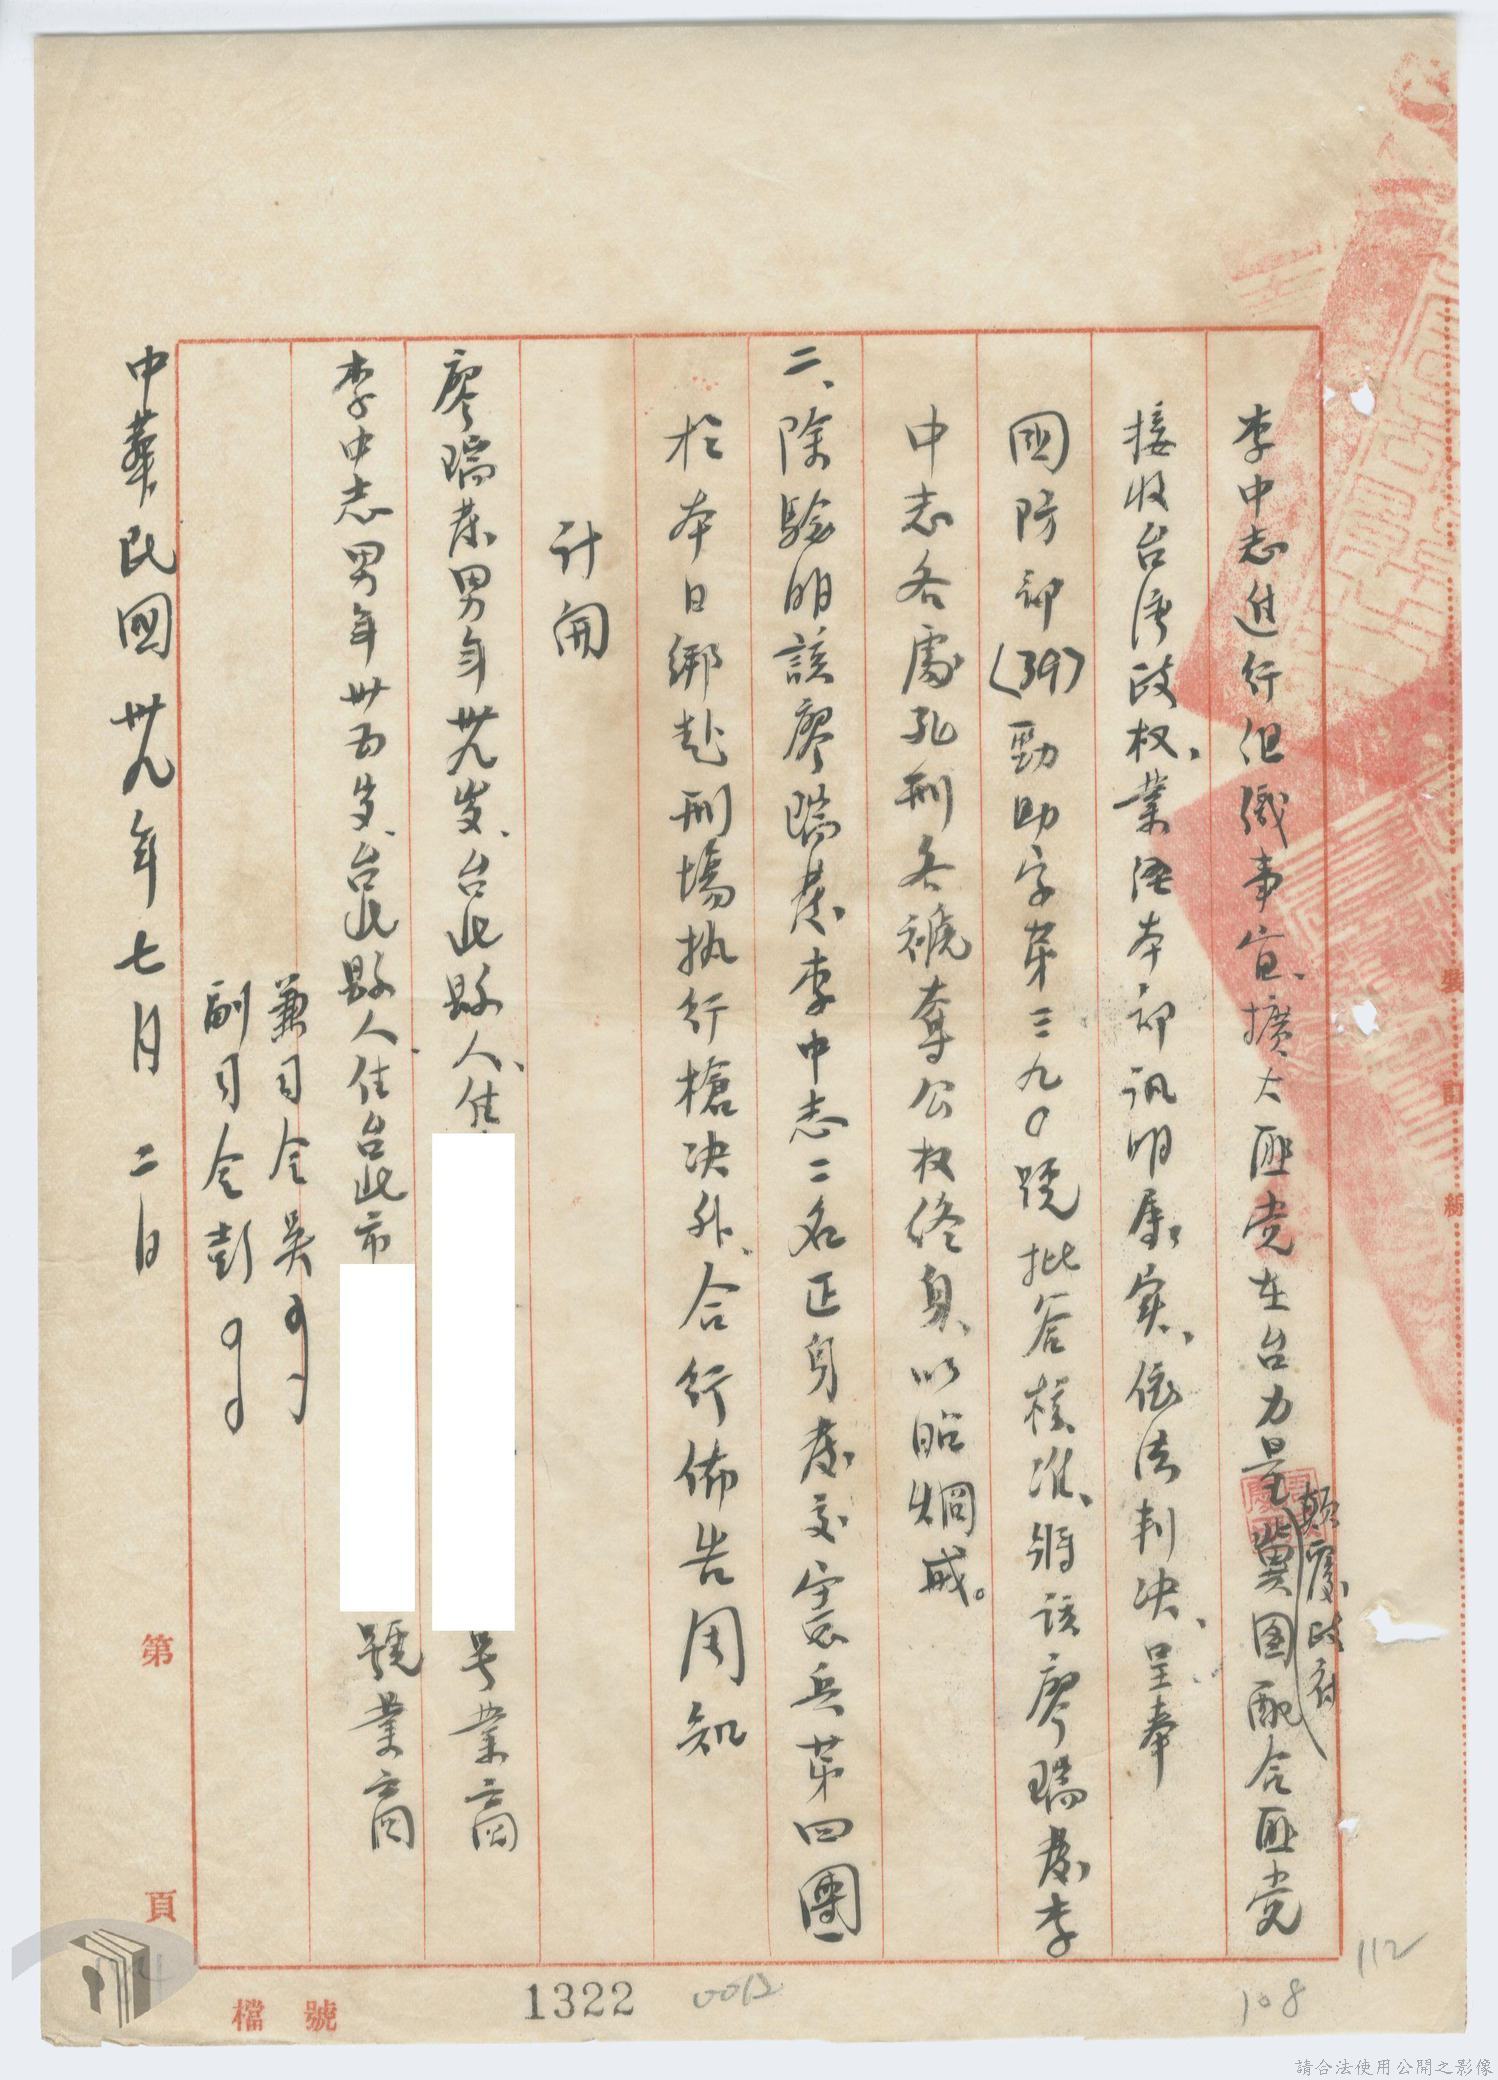 李中志进行组織事宜、擴大匪党在台力量冀图配合匪党
顛覆政府
接收台湾政权、業经本部讯明属实、依法判决、呈奉
國防部(39)勁助字第三九〇號批答核准、將該廖瑞發李
中志各處死刑各褫奪公权終身、以昭炯戒。
二、除驗明該廖瑞發李中志二名正身發交憲兵第四團
於本日綁赴刑場执行槍决外、合行佈告周知
計開
廖瑞發男年卅九岁、台北縣人、住
号業商
李中志男年卅五岁、台北縣人住台北市
號業商
兼司令吳
副司令彭
中華民國卅九年七月二日
第
頁
檔號
1322
112
108
裝
訂
線
請合法使用公開之影像